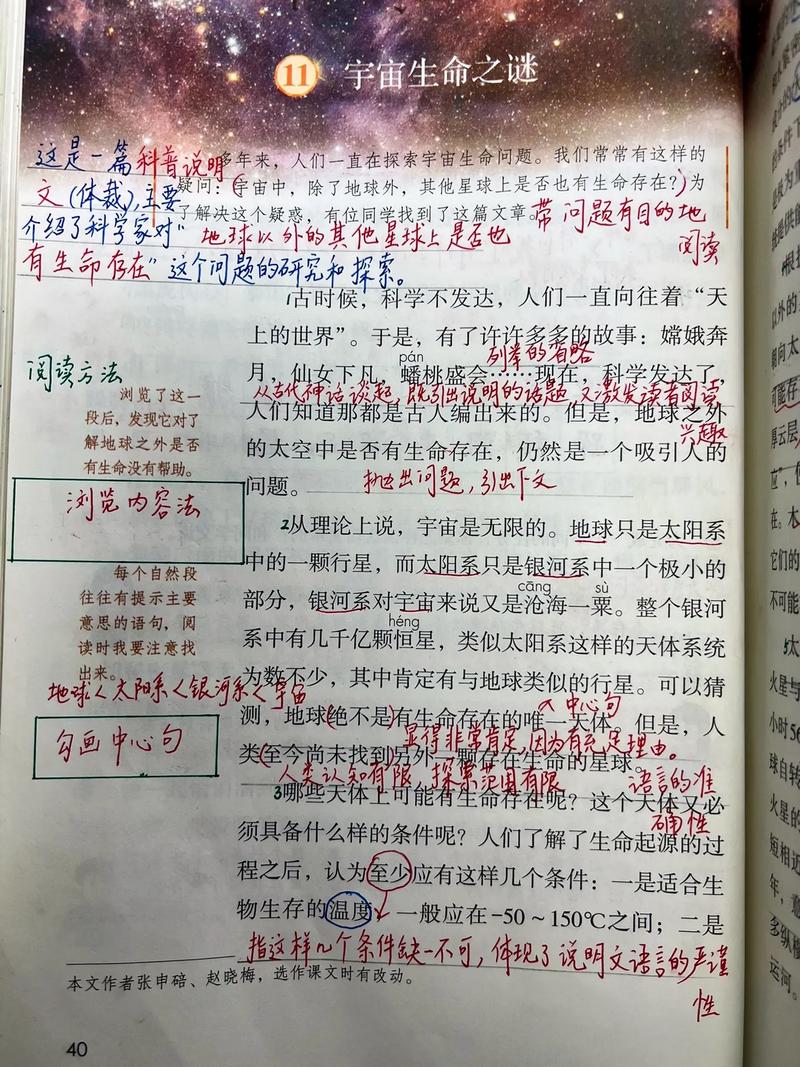 11 宇宙生命之谜
多年来，人们一直在探索宇宙生命问题。我们常常有这样的
疑问：宇宙中，除了地球外，其他星球上是否也有生命存在？为
了解决这个疑惑，有位同学找到了这篇文章。
这是一篇科普说明
文(体裁)，主要
介绍了科学家对“地球以外的其他星球上是否也
有生命存在”这个问题的研究和探索。
带问题有目的地
阅读
1古时候，科学不发达，人们一直向往着“天
上的世界”。于是，有了许许多多的故事：嫦娥奔
pán
月，仙女下凡，蟠桃盛会……现在，科学发达了，
列举的省略
从古代神话谈起，既引出说明的话题，又激发读者阅读
兴趣
人们知道那都是古人编出来的。但是，地球之外
的太空中是否有生命存在，仍然是一个吸引人的
问题。
抛出问题，引出下文
阅读方法
浏览了这一
段后，发现它对了
解地球之外是否
有生命没有帮助。
浏览内容法
2从理论上说，宇宙是无限的。地球只是太阳系
中的一颗行星，而太阳系只是银河系中一个极小的
cāng sù
部分，银河系对宇宙来说又是沧海一粟。整个银河
héng
系中有几千亿颗恒星，类似太阳系这样的天体系统
为数不少，其中肯定有与地球类似的行星。可以猜
测，地球(绝不是)有生命存在的唯一天体。但是，人
类(至今尚未找到)另外一颗存在生命的星球。
中心句
显得非常肯定，因为有充足理由。
人类认知有限，探索范围有限
语言的准
确性
每个自然段
往往有提示主要
意思的语句，阅
读时我要注意找
出来。
地球<太阳系<银河系<宇宙
勾画中心句
3哪些天体上可能有生命存在呢？这个天体又必
须具备什么样的条件呢？人们了解了生命起源的过
程之后，认为至少应有这样几个条件：一是适合生
物生存的温度，一般应在-50～150℃之间；二是
指这样几个条件缺一不可，体现了说明文语言的严谨
性
本文作者张申碚、赵晓梅，选作课文时有改动。
40